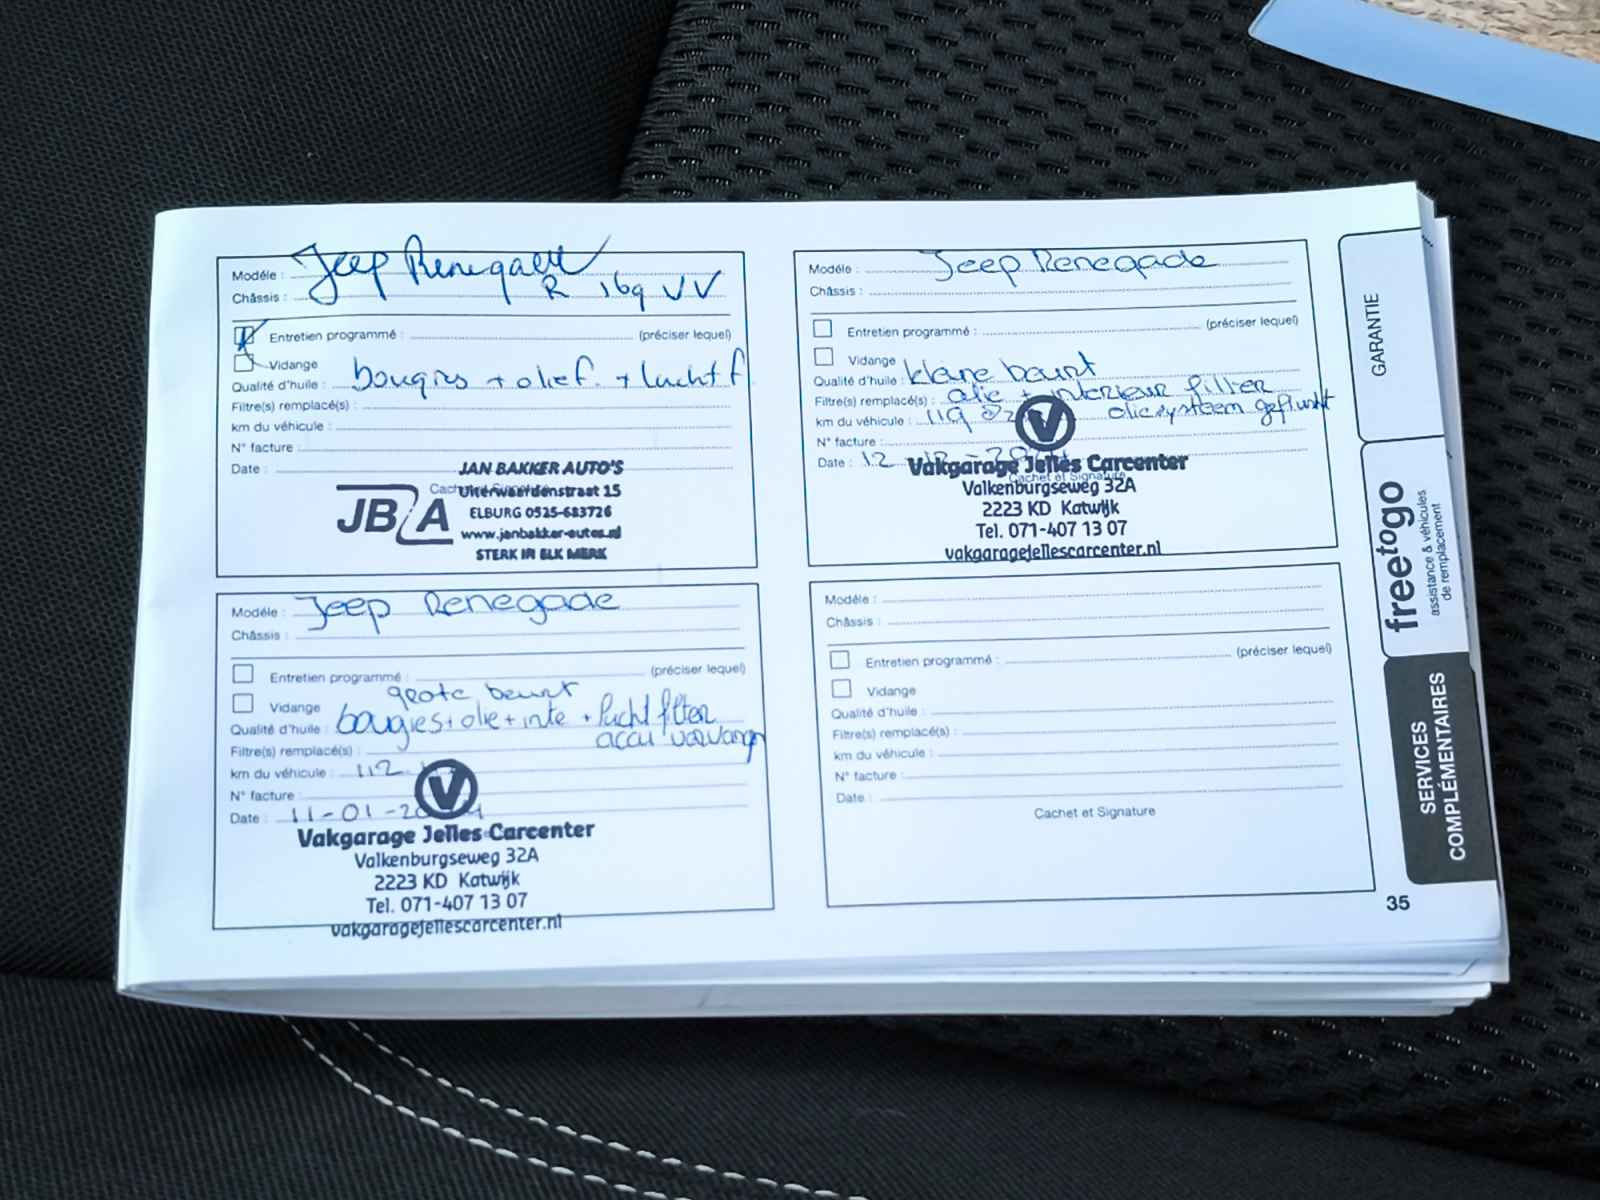 Modèle : Jeep Renegade
Châssis : R 169 VV
Entretien programmé : (préciser lequel)
Vidange
Qualité d'huile : bougies + olief. + luchtf
Filtre(s) remplacé(s) :
km du véhicule :
N° facture :
Date :
JAN BAKKER AUTO'S
Cachet et Signature
Uiterwaardenstraat 15
JBA
ELBURG 0525-683726
www.janbakker-autos.nl
STERK IN ELK MERK
Modèle : Jeep Renegade
Châssis :
Entretien programmé : (préciser lequel)
grote beurt
Vidange
Qualité d'huile : bougies + olie + inte + luchtfilter
accu vervangen
Filtre(s) remplacé(s) :
km du véhicule : 112.
N° facture :
Date : 11-01-20
V
Vakgarage Jelles Carcenter
Valkenburgseweg 32A
2223 KD Katwijk
Tel. 071-407 13 07
vakgaragejellescarcenter.nl
Modèle : Jeep Renegade
Châssis :
Entretien programmé : (préciser lequel)
Vidange
Qualité d'huile : kleine beurt
Filtre(s) remplacé(s) : olie + interieur filter
km du véhicule : 119 oliesysteem geflusht
N° facture :
Date : 12
V
Vakgarage Jelles Carcenter
Cachet et Signature
Valkenburgseweg 32A
2223 KD Katwijk
Tel. 071-407 13 07
vakgaragejellescarcenter.nl
Modèle :
Châssis :
Entretien programmé : (préciser lequel)
Vidange
Qualité d'huile :
Filtre(s) remplacé(s) :
km du véhicule :
N° facture :
Date :
Cachet et Signature
GARANTIE
freetogo
assistance & véhicules
de remplacement
SERVICES
COMPLÉMENTAIRES
35